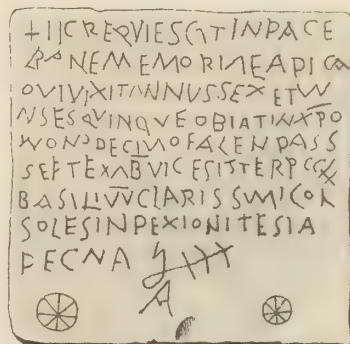 + IIC REQVIESCIT IN PACE
BONE MEMORIAE APICA
QVI VIXIT ANNUS SEX ET M
NSES QVINQVE OBIAT IN XPO
DECIMO
SEPTE VICES IS TER PC
BASILI VV CLARISSVMI CON
SOLES IN PEXIONITESIA
PECNA
A